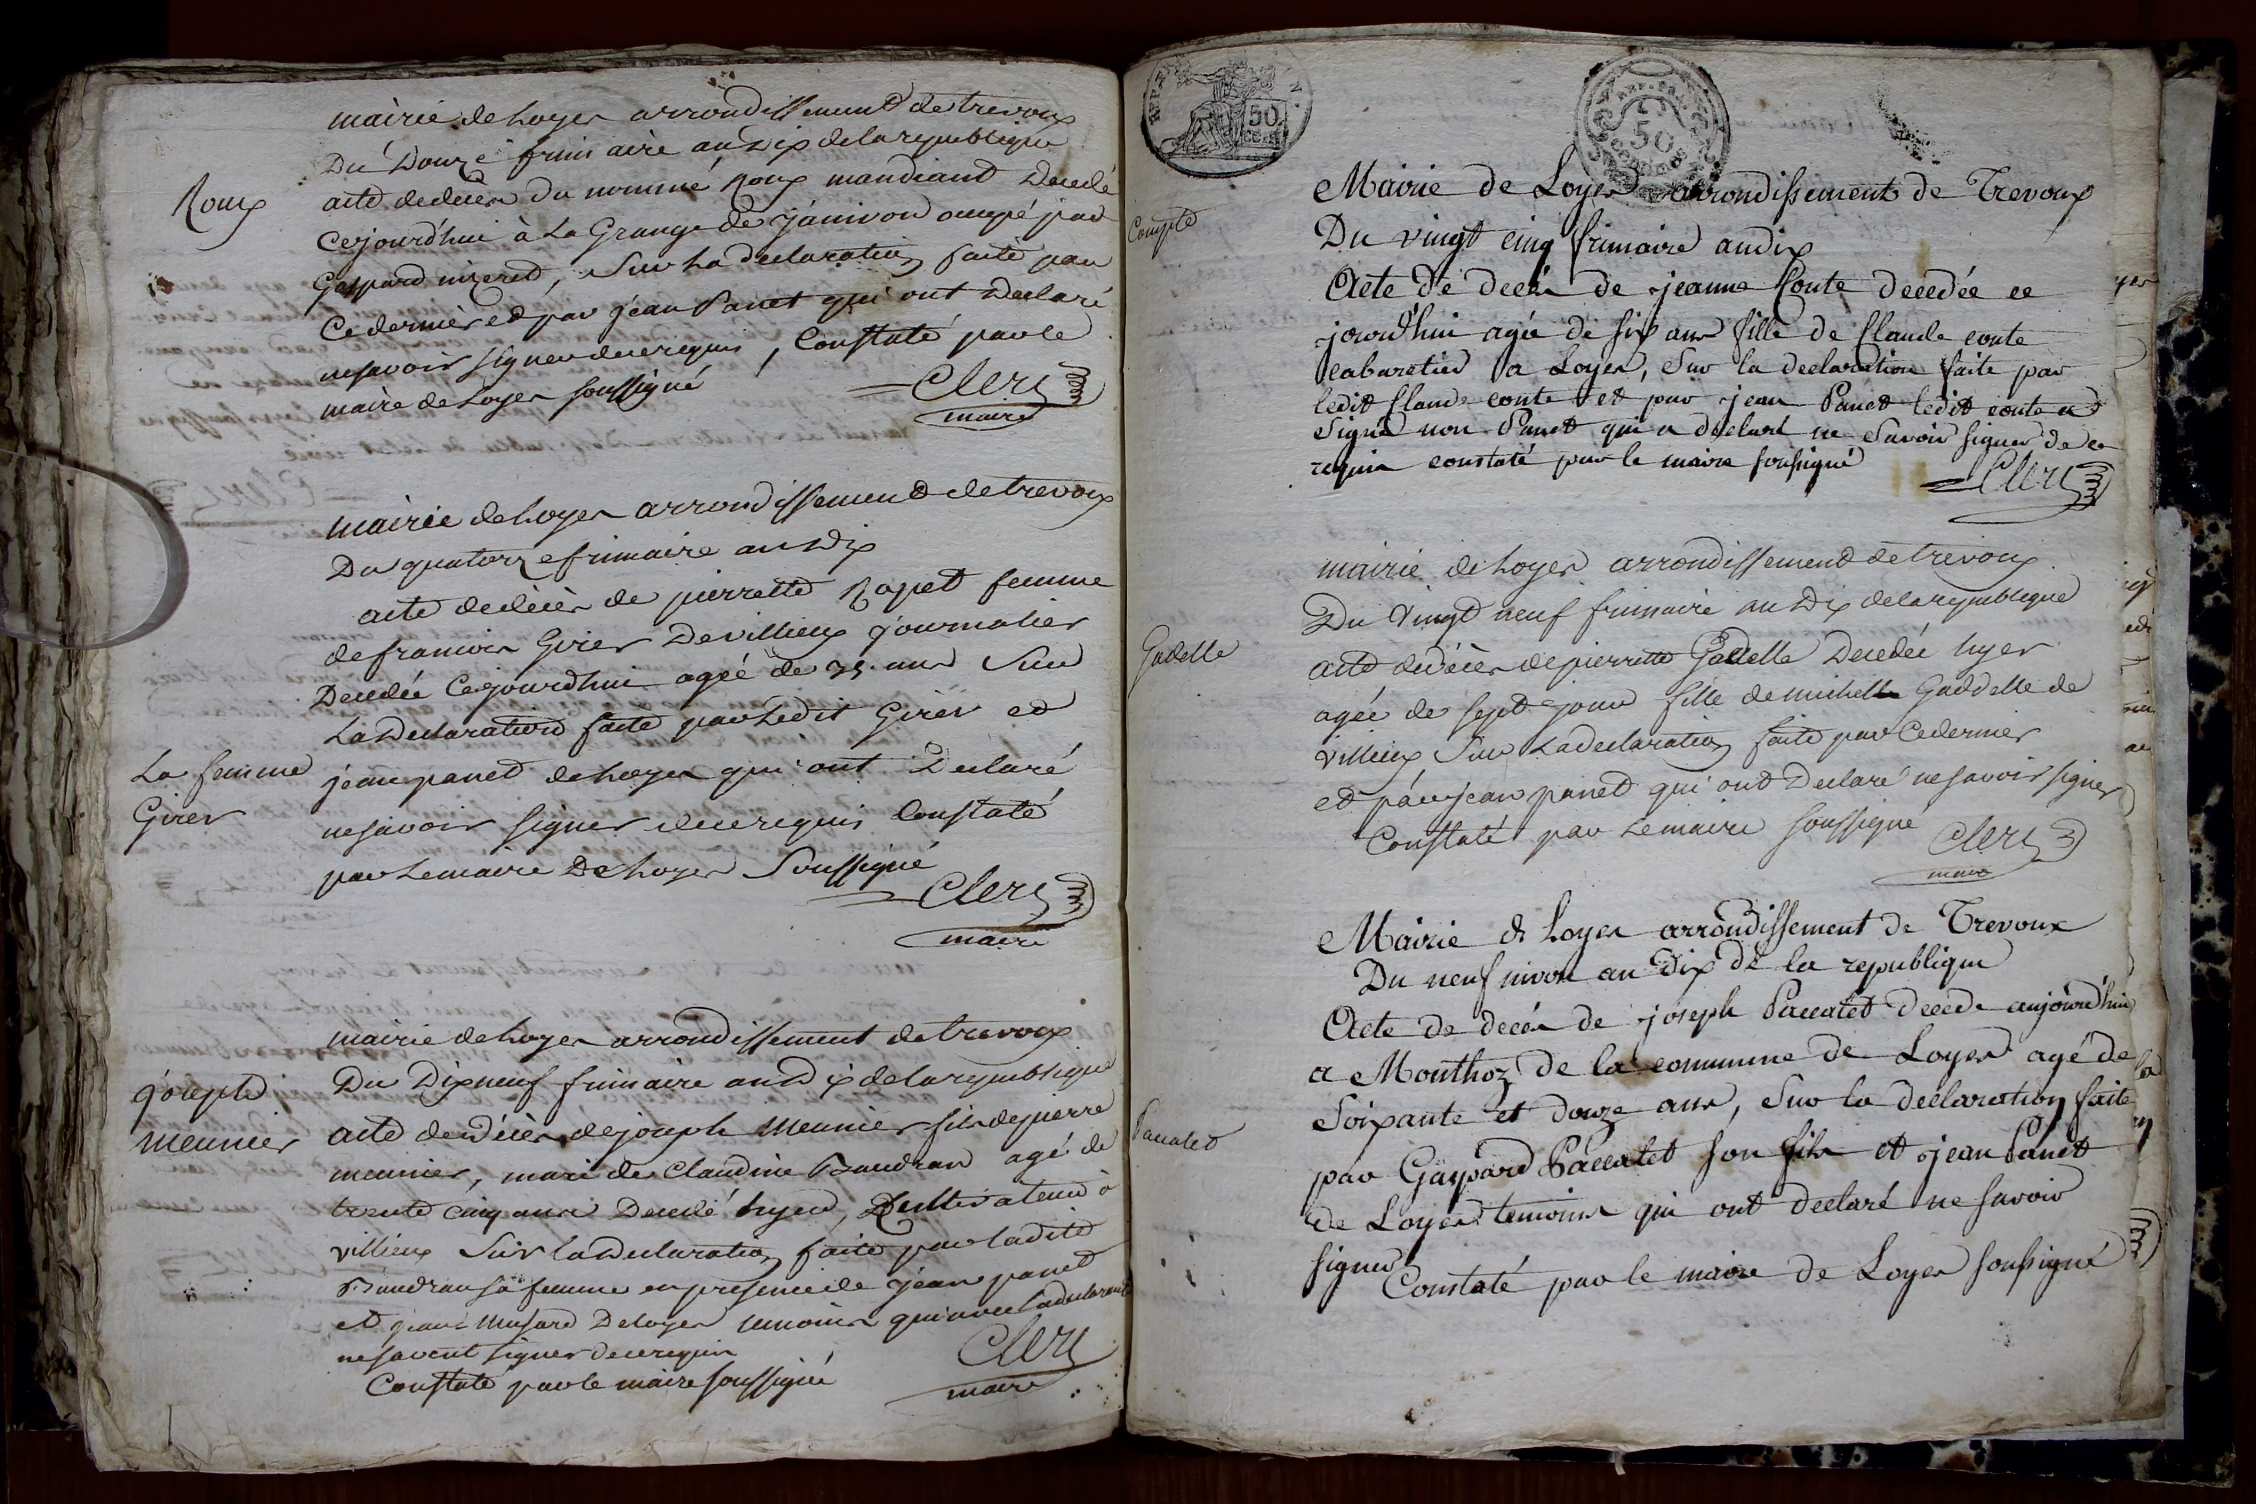 mairie de Loyes arrondissement de trevoux
Du Douze frimaire an Dix de la republique
Roux
acte de deces du nommé Roux mandiant Decedé
Cejourd'hui à La Grange de janivon occupé par
Gaspard mizeret, Sur La declaration faite par
Ce dernier et par jean Panet qui ont declaré
ne savoir signer de ce requis, Constaté par le
maire de Loyes soussigné
Clerc
maire
mairie de Loyes arrondissement de trevoux
Du quatorze frimaire an Dix
acte de décès de pierrette Rapet femme
de francois Girer De villieux journalier
Decedée Cejourdhui agée de 35 ans Sur
La Declaration faite par Ledit Girer et
La femme
Girer
jean panet de Loyes qui ont Declaré
ne savoir signer de ce requis Constaté
par Le maire De Loyes Soussigné
Clerc
maire
mairie de Loyes arrondissement de trevoux
joseph
meunier
Du Dixneuf frimaire an Dix de la republique
acte de Décès de joseph meunier fils de pierre
meunier, mari de Claudine Baudran agé de
trente cinq ans Decedé hyer, Cultivateur à
villieux Sur La Declaration faite par ladite
Baudran sa femme en presence de jean panet
et jean Musard De loyes temoins qui avec la declarante
ne savent signer de ce requis
Constaté par le maire soussigné
Clerc
maire
50
CENT
50
centimes
Compte
Mairie de Loyes arrondissement de Trevoux
Du vingt cinq frimaire an dix
Acte de decès de jeanne Conte decedée ce
jourd'hui agée de six ans fille de Claude conte
cabaretier a Loyes, Sur la declaration faite par
ledit Claude conte et par jean Panet ledit conte a
Signé non Panet qui a declaré ne Savoir signer de ce
requis constaté par le maire soussigné
Clerc
mairie de Loyes arrondissement de trevoux
Du Vingt neuf frimaire an Dix de la republique
Gadelle
acte de décès de pierrette Gadelle Decedée hyer
agée de sept jours fille de michelle Gaddelle de
villieux Sur La declaration faite par Ce dernier
et par jean panet qui ont Declaré ne savoir signer
Constaté par Le maire soussigné
Clerc
maire
Mairie de Loyes arrondissement de Trevoux
Du neuf nivose an Dix de la republique
Acte de decès de joseph Paccatet decedé aujourd'hui
a Monthoz de la commune de Loyes agé de
Paccatet
Soixante et douze ans, Sur la declaration faite
par Gaspard Paccatet son fils et jean Panet
de Loyes temoins qui ont declaré ne savoir
signer
Constaté par le maire de Loyes soussigné